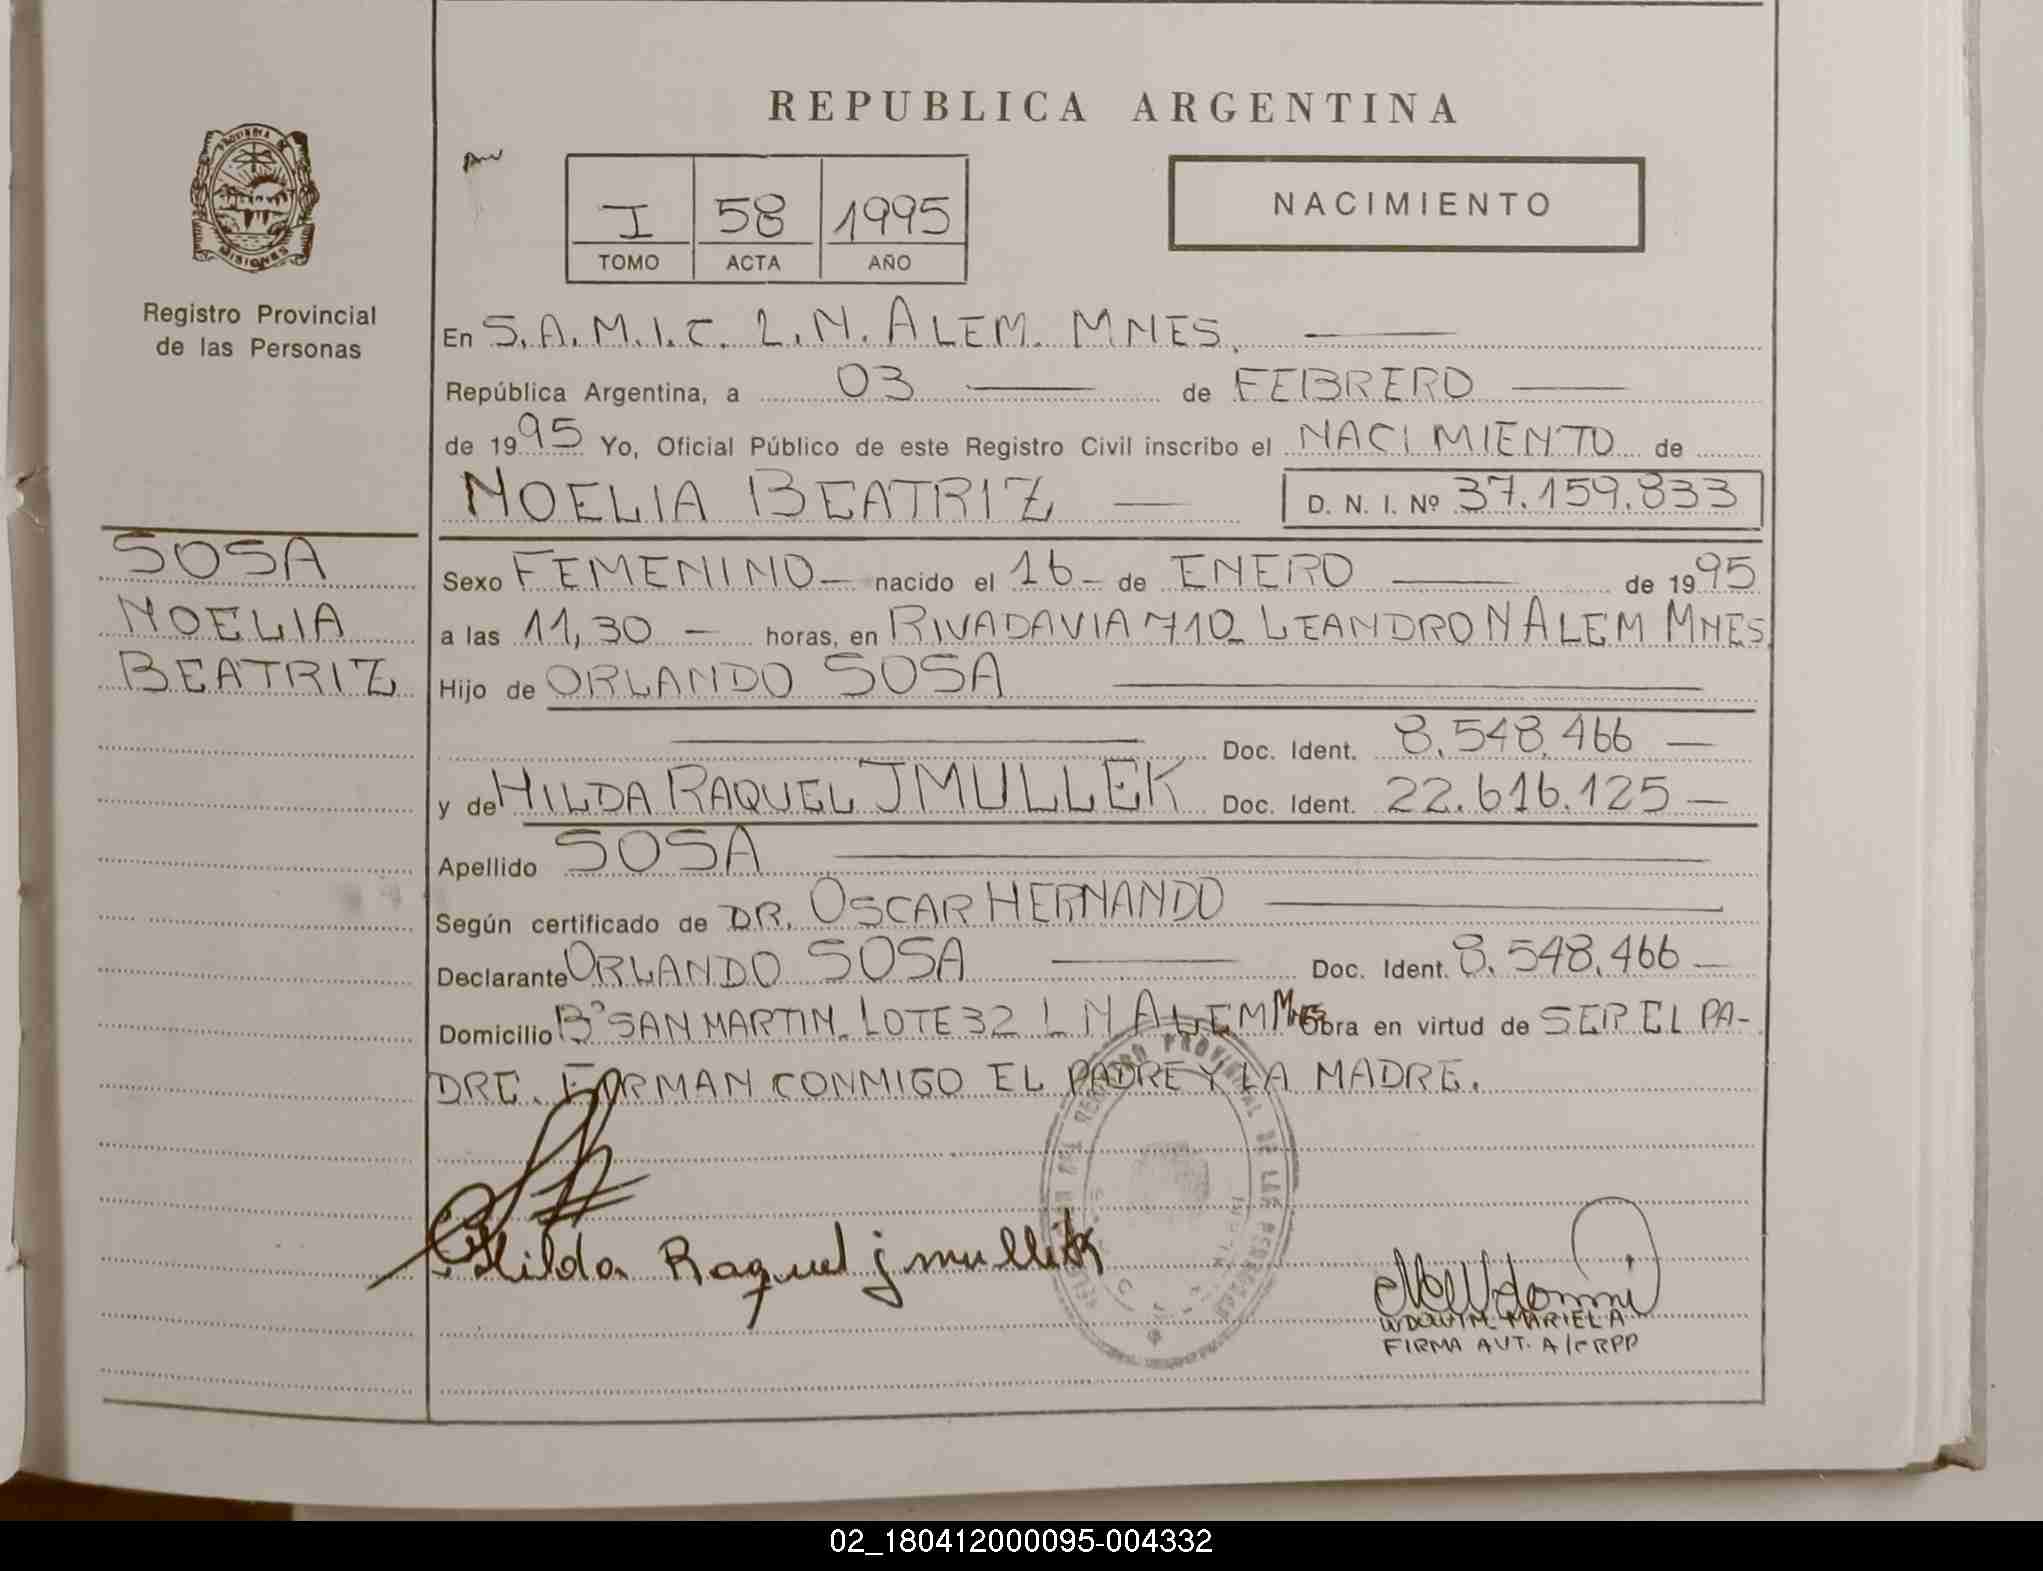 REPUBLICA ARGENTINA
PROVINCIA DE
MISIONES
Registro Provincial
de las Personas
I 58 1995
TOMO ACTA AÑO
NACIMIENTO
En S.A.M.I.C. L.N. ALEM. MNES.
República Argentina, a 03 de FEBRERO
de 1995 Yo, Oficial Público de este Registro Civil inscribo el NACIMIENTO de
NOELIA BEATRIZ D. N. I. Nº 37.159.833
SOSA
NOELIA
BEATRIZ
Sexo FEMENINO nacido el 16 de ENERO de 1995
a las 11,30 horas, en RIVADAVIA 710 LEANDRO N ALEM MNES
Hijo de ORLANDO SOSA
Doc. Ident. 8.548.466
y de HILDA RAQUEL JMULLEK Doc. Ident. 22.616.125
Apellido SOSA
Según certificado de DR. OSCAR HERNANDO
Declarante ORLANDO SOSA Doc. Ident. 8.548.466
Domicilio Bº SAN MARTIN LOTE 32 L N ALEM Mnes Obra en virtud de SER EL PA-
DRE. FIRMAN CONMIGO EL PADRE Y LA MADRE.
REGISTRO PROVINCIAL DE LAS PERSONAS
Hilda Raquel jmullek
MARIELA
FIRMA AUT. A/C RPP
02_180412000095-004332